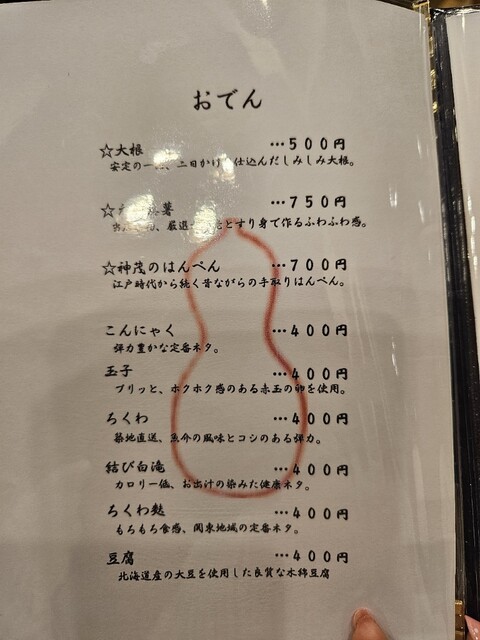 おでん
☆大根 …500円
安定の一 二日かけ 仕込んだしみしみ大根。
☆ 薯 …750円
厳選 とすり身で作るふわふわ感。
☆神茂のはんぺん …700円
江戸時代から続く昔ながらの手取りはんぺん。
こんにゃく …400円
弾力豊かな定番ネタ。
玉子 …400円
プリっと、ホクホク感のある赤玉の卵を使用。
ちくわ …400円
築地直送、魚介の風味とコシのある弾力。
結び白滝 …400円
カロリー低、お出汁の染みた健康ネタ。
ちくわ麩 …400円
もちもち食感、関東地域の定番ネタ。
豆腐 …400円
北海道産の大豆を使用した良質な木綿豆腐